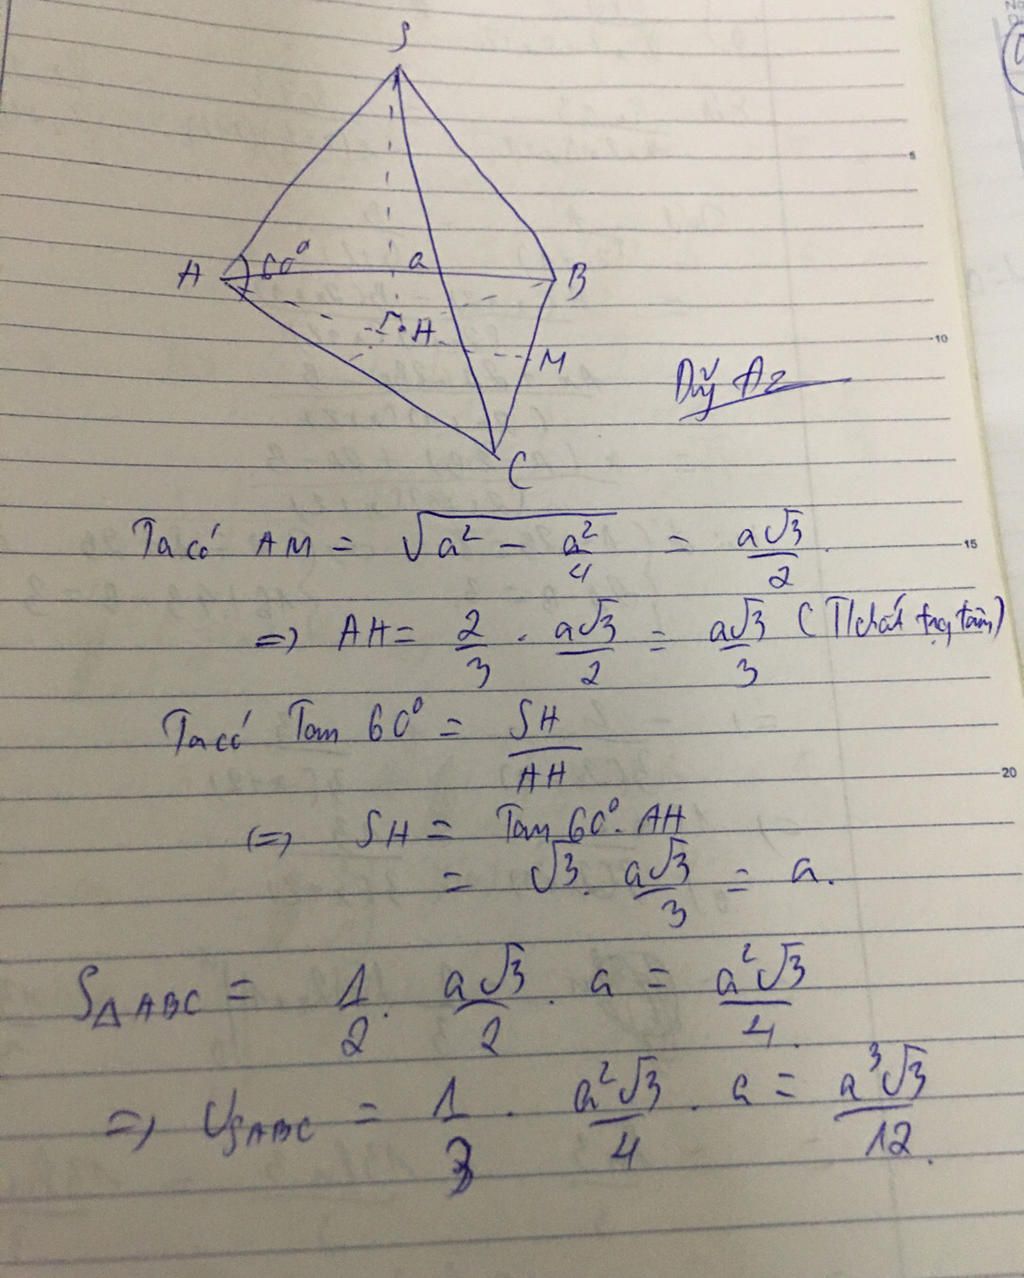 S
A 60° a B
H
M
C
Ta có AM = √(a² - a²/4) = a√3/2.
=> AH = 2/3 . a√3/2 = a√3/3 (T/chất trọng tâm)
Ta có Tan 60° = SH/AH
(=) SH = Tan 60°. AH
= √3. a√3/3 = a.
S△ABC = 1/2. a√3/2 . a = a²√3/4.
=> VSABC = 1/3 . a²√3/4 . a = a³√3/12.